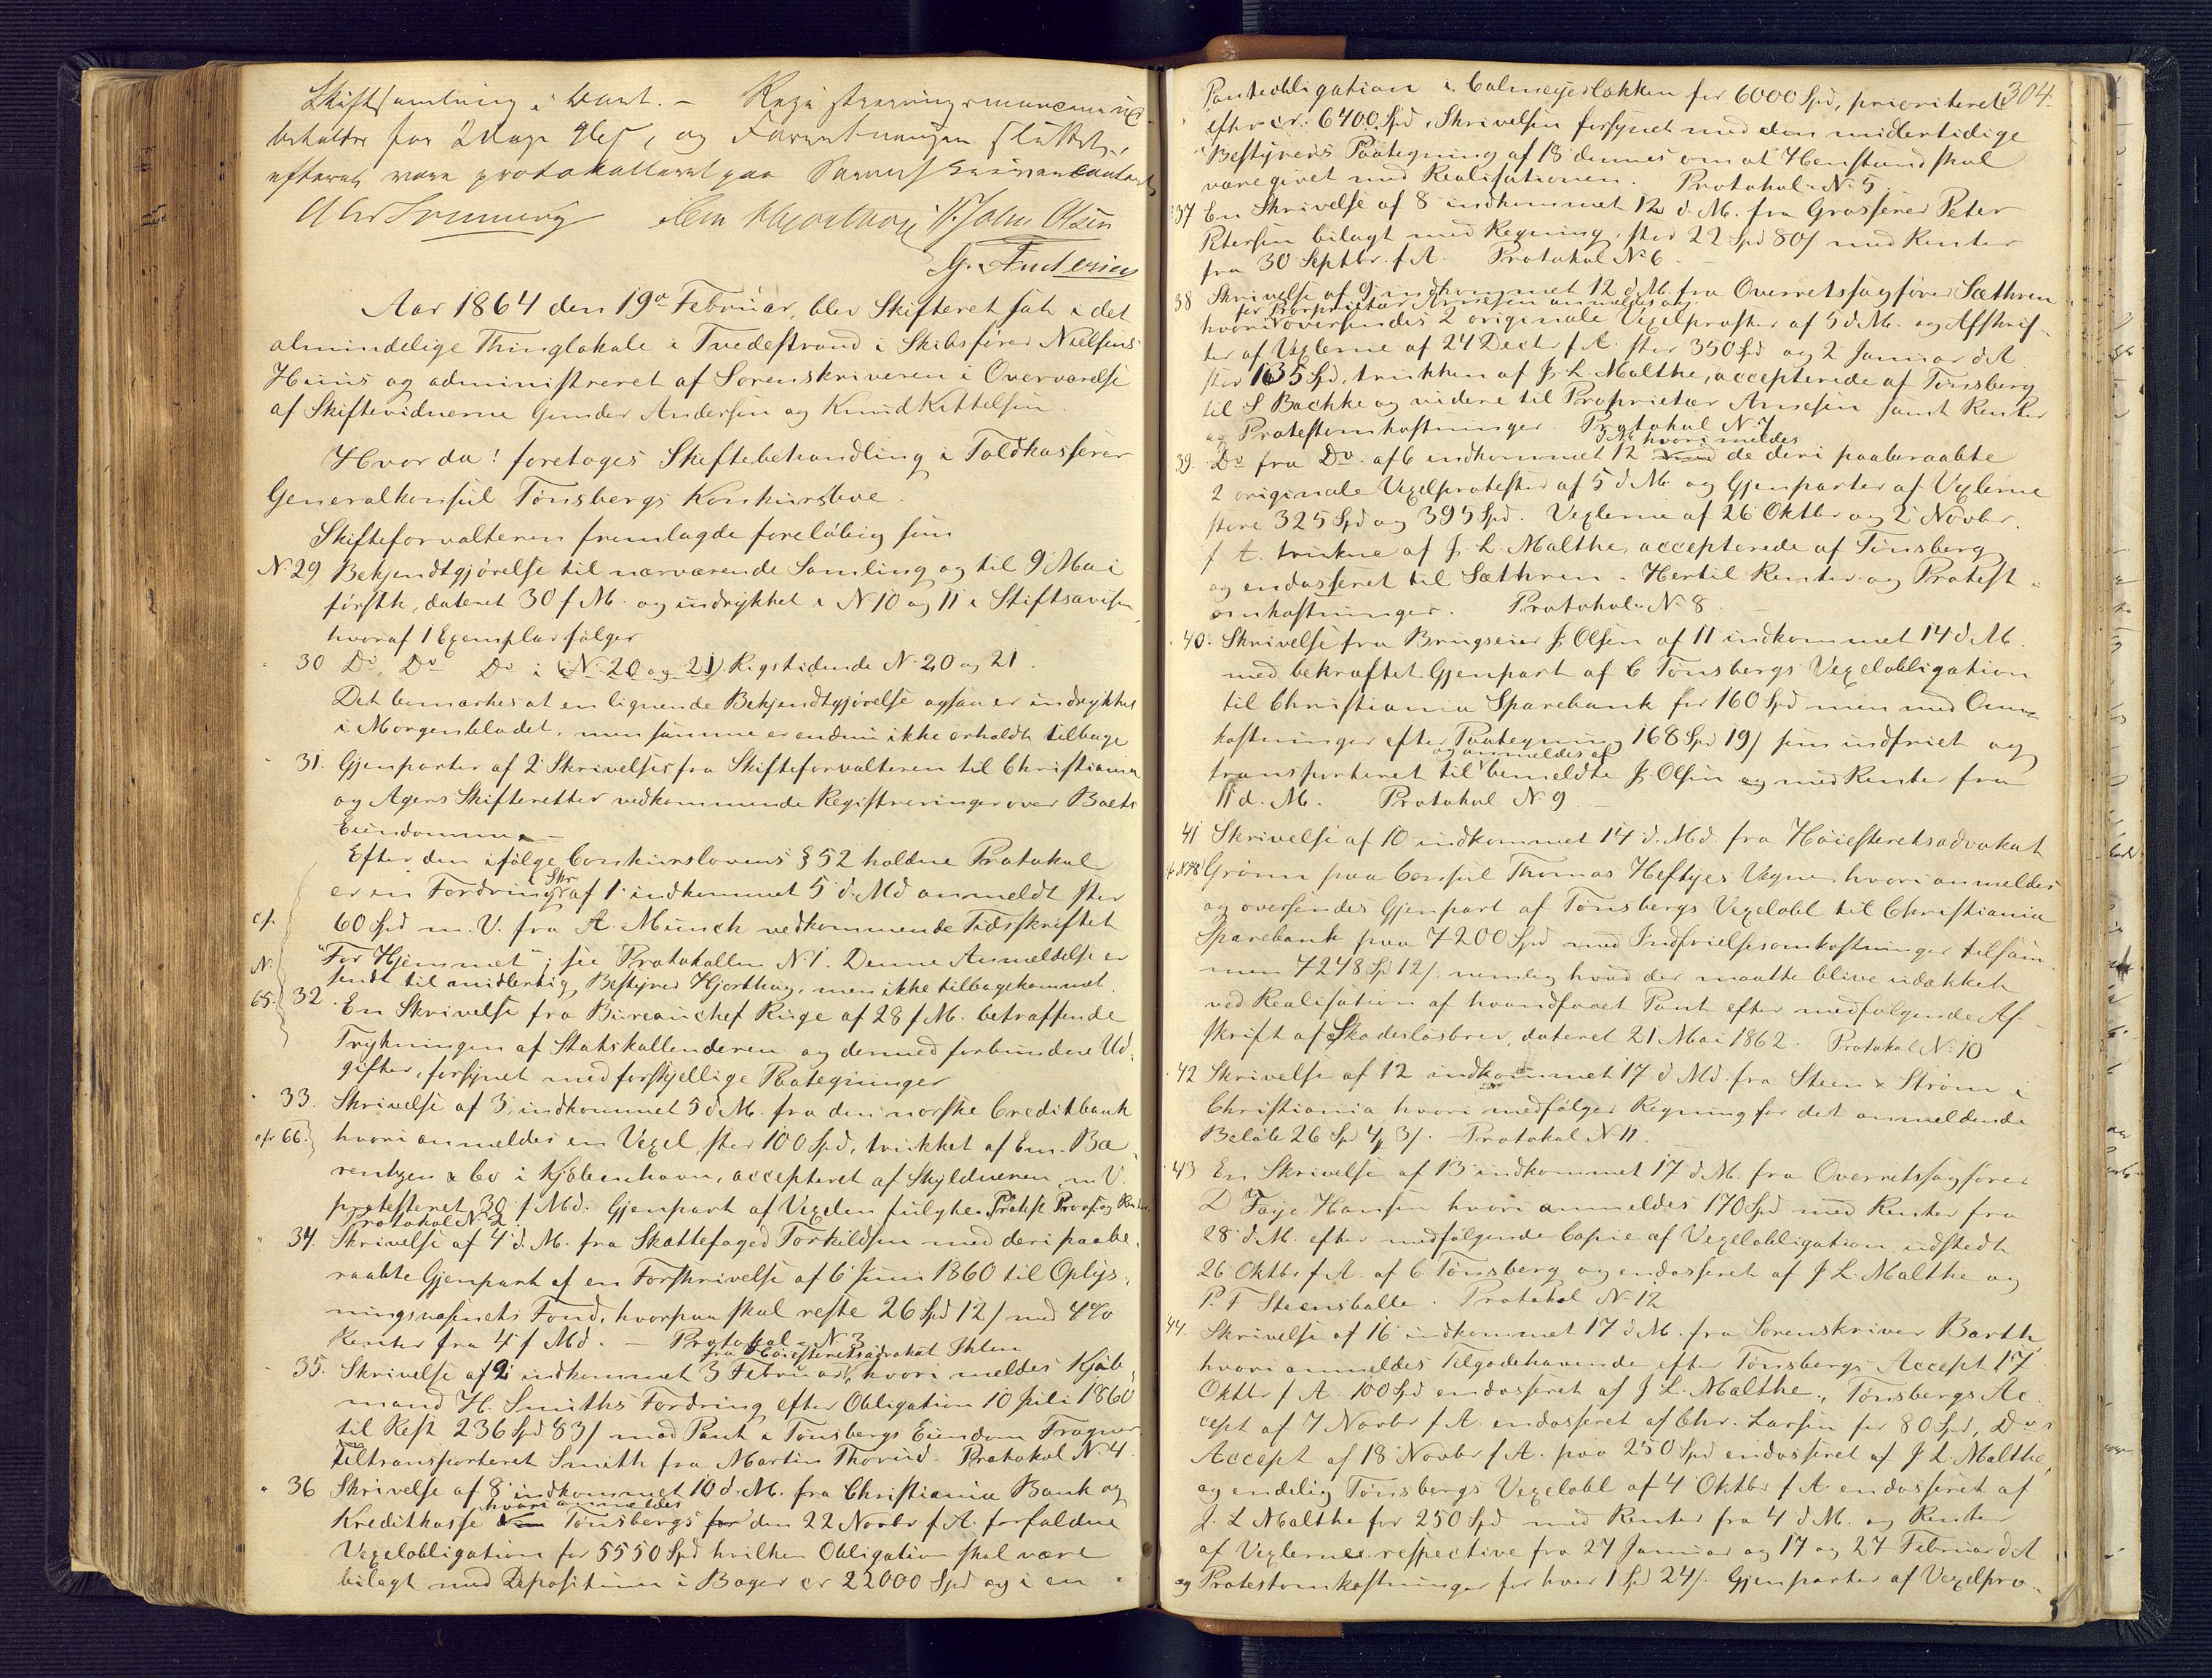 Skiftsamling i Havt. – Registreringsmændene
beholdes for 2 Dage
efterat være protokolleret paa
Chr Sverinning Chr Hjorthøy P. John Olsen
G. Andersen
Aar 1864 den 19de Februar, blev Skifteret sat i det
almindelige Thinglokale i Tvedestrand i Skibsfører Nielsens
Huus og administreret af Sorenskriveren i Overværelse
af Skiftevidnerne Gunder Andersen og Knud Kittelsen
Hvor da! foretoges Skiftebehandling i Toldkasserer
Generalkonsul Tønsbergs Konkursboe.
Skifteforvalteren fremlagde foreløbig sin
N. 29 Bekjendtgjørelse til nærværende Samling og til 9 Mai
førstk, dateret 30 f M. og indrykket i N 10 og 11 i Stiftsavisen
hvoraf 1 Exemplar følger
30 Do, Do Do i (N. 20 og 21) Rigstidende N. 20 og 21.
Det bemærkes at en lignende Bekjendtgjørelse ogsaa er indrykket
i Morgenbladet, men samme er endnu ikke erholdt tilbage
31. Gjenparter af 2 Skrivelser fra Skifteforvalteren til Christiania
og Agers Skifteretter vedkommende Registreringer over Boets
Eiendomme –
Efter den ifølge Conkurslovens § 52 holdne Protokol
er en Fordring Skr. af 1 indkommet 5 d. Md anmeldt stor
cf. 60 Spd m. V. fra A. Munch vedkommende Tidsskriftet
N. "For Hjemmet"; see Protokollen N 1. Denne Anmeldelse er
sendt til midlertig Bestyrer Hjorthøy, men ikke tilbagekommet.
65. 32. En Skrivelse fra Bureauchef Ruge af 28 f M. betræffende
Trykningen af Statskallenderen og dermed forbundne Ud-
gifter, forsynet med forskjellige Paategninger
33. Skrivelse af 3, indkommet 5 d M. fra den norske Creditbank
cfr 66. hvori anmeldes en Vexel stor 100 Spd, trukket af Em. Bæ-
rentzen & Co i Kjøbenhavn, accepteret af Skyldneren m V.
protesteret 30 f Md. Gjenpart af Vexelen fulgte. Protest Provs. og Renter.
Protokol N. 2
34. Skrivelse af 4 d. M. fra Skattefoged Torkildsen med deri paabe-
raabte Gjenpart af en Forskrivelse af 6 Juni 1860 til Oplys-
ningsvæsenets Fond, hvorpaa skal reste 26 Spd 12 ß med 4 %
Renter fra 4 f Md. – Protokol – N. 3
fra Høiesteretsadvokat Ihlen
35. Skrivelse af 2 indkommet 3 Februar, hvori meldes Kjøb-
mand H. Smiths Fordring efter Obligation 10 Juli 1860
til Rest 236 Spd 83 ß mod Pant i Tønsbergs Eiendom Frogner
Tiltransporteret Smith fra Martin Thorud. Protokol N. 4.
36 Skrivelse af 8 indkommet 10 d. M. fra Christiania Bank og
hvori anmeldes
Kreditkasse Tønsbergs for den 22 Novbr f A. forfaldne
Vexelobligation for 5550 Spd hvilken Obligation skal være
bilagt med Depositum i Bøger cr 22000 Spd og i en
304.
Panteobligation i Calmeyerløkken for 6000 Spd, prioriteret
efter cr: 6400 Spd, Skrivelsen forsynet med den midlertidige
Bestyrers Paategning af 13 dennes om at Henstand skal
være givet med Realisationen. Protokol N. 5.
37 En Skrivelse af 8 indkommet 12 d. M. fra Grosserer Peter
Petersen bilagt med Regning, stor 22 Spd 80 ß med Renter
fra 30 Septbr. f A. Protokol N. 6.
38 Skrivelse af 9 indkommet 12 d. M. fra Overretssagfører Sæthren
for Proprietær Arnesen anmeldes og
hvori oversendes 2 originale Vexelprotester af 5 d M. og Afskrif-
ter af Vexlerne af 24 Decbr f A. stor 350 Spd og 2 Januar d A
stor 135 Spd, trukken af J. L. Malthe, accepterede af Tønsberg
til S Bachke og videre til Proprietær Arnesen samt Renter
og Protestomkostninger. Protokol N. 7
d M. hvori meldes
39. Do fra Do. af 6 indkommet 12 de deri paaberaabte
2 originale Vexelprotester af 5 d M. og Gjenparter af Vexlerne
store 325 Spd og 395 Spd. Vexlerne af 26 Oktbr og 2 Novbr.
f A. trukne af J. L. Malthe, accepterede af Tønsberg
og endosseret til Sæthren. Hertil Renter og Protest-
omkostninger. Protokol N. 8
40. Skrivelse fra Brugseier J. Olsen af 11 indkommet 14 d M.
med bekræftet Gjenpart af C Tønsbergs Vexelobligation
til Christiania Sparebank for 160 Spd men med Om-
kostninger efter Paategning 168 Spd 19 ß som indfriet og
og anmeldes af
transporteret til bemeldte J. Olsen og med Renter fra
11 d. M. Protokol N. 9
41 Skrivelse af 10 indkommet 14 d. Md. fra Høiesteretsadvokat
Grønn paa Consul Thomas Heftyes Vegne, hvori anmeldes
og oversendes Gjenpart af Tønsbergs Vexelobl til Christiania
Sparebank paa 7200 Spd med Indfrielsesomkostninger tilsam-
men 7248 Spd 12 ß, nemlig hvad der maatte blive udækket
ved Realisation af haandfaaet Pant efter medfølgende Af-
skrift af Skadesløsbrev, dateret 21 Mai 1862. Protokol N. 10
42 Skrivelse af 12 indkommet 17 d Md. fra Steen & Strøm i
Christiania hvori medfølger Regning for det anmeldende
Beløb 26 Spd 4 ß 3 ß. – Protokol N 11.
43 En Skrivelse af 13 indkommet 17 d. M. fra Overretssagfører
D Faye Hansen hvori anmeldes 170 Spd med Renter fra
28 d. M. efter medfølgende Copie af Vexelobligation, udstedt
26 Oktbr f A. af C Tønsberg og endosseret af J L. Malthe og
P. F Steensballe. Protokol N. 12
44. Skrivelse af 16 indkommet 17 d. M. fra Sorenskriver Barth,
hvori anmeldes Tilgodehavende efter Tønsbergs Accept 17
Oktbr f A. 100 Spd endosseret af J L. Malthe., Tønsbergs Ac-
cept af 7 Novbr f A. endosseret af Chr. Larsen for 80 Spd, Dos
Accept af 18 Novbr f A. paa 250 Spd endosseret af J L Malthe,
og endelig Tønsbergs Vexelobl af 4 Oktbr f A. endosseret af
J. L Malthe for 250 Spd med Renter fra 4 d M. og Renter
af Vexlerne respective fra 27 Januar og 17 og 27 Februar d A
og Protestomkostninger for hver 1 Spd 24 ß. Gjenparter af Vexelpro-